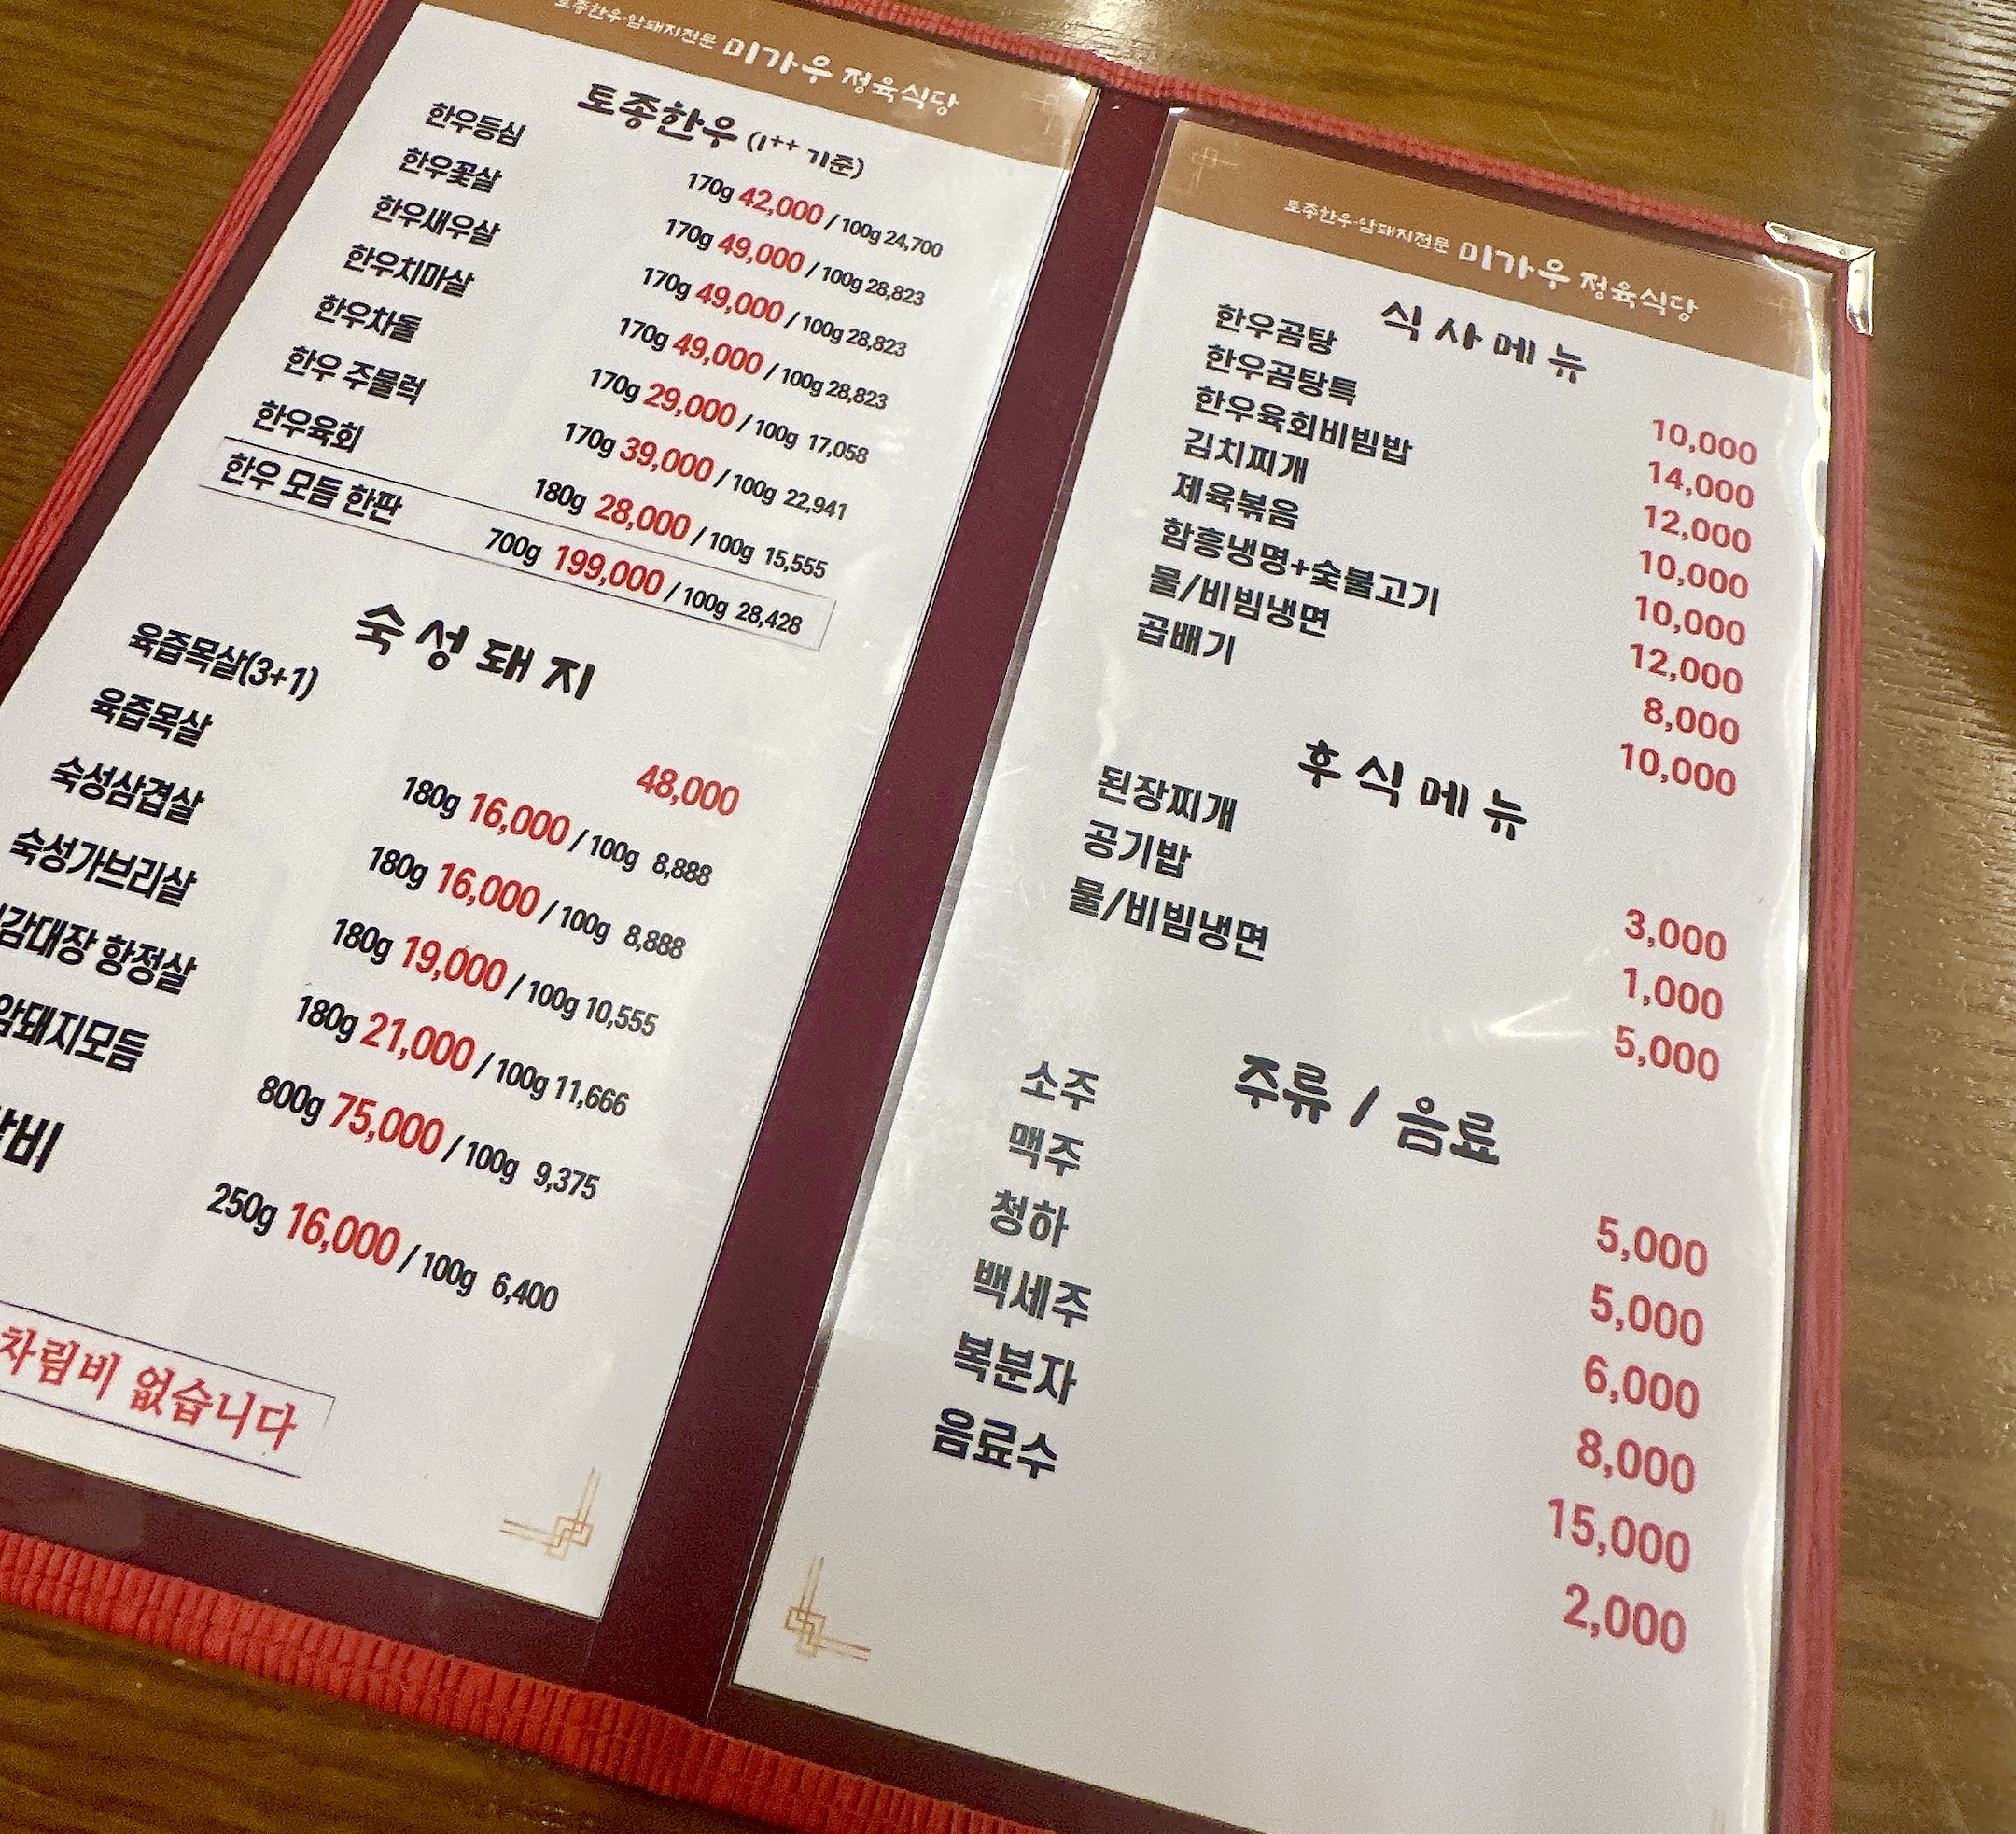 토종한우·암돼지전문 미가우 정육식당
토종한우 (1++ 기준)
한우등심 170g 42,000 / 100g 24,700
한우꽃살 170g 49,000 / 100g 28,823
한우새우살 170g 49,000 / 100g 28,823
한우치마살 170g 49,000 / 100g 28,823
한우차돌 170g 29,000 / 100g 17,058
한우 주물럭 170g 39,000 / 100g 22,941
한우육회 180g 28,000 / 100g 15,555
한우 모듬 한판 700g 199,000 / 100g 28,428
숙성돼지
육즙목살(3+1) 48,000
육즙목살 180g 16,000 / 100g 8,888
숙성삼겹살 180g 16,000 / 100g 8,888
숙성가브리살 180g 19,000 / 100g 10,555
감대장 항정살 180g 21,000 / 100g 11,666
암돼지모듬 800g 75,000 / 100g 9,375
비 250g 16,000 / 100g 6,400
차림비 없습니다
토종한우·암돼지전문 미가우 정육식당
식사메뉴
한우곰탕 10,000
한우곰탕특 14,000
한우육회비빔밥 12,000
김치찌개 10,000
제육볶음 10,000
함흥냉명+숯불고기 12,000
물/비빔냉면 8,000
곱배기 10,000
후식메뉴
된장찌개 3,000
공기밥 1,000
물/비빔냉면 5,000
주류 / 음료
소주 5,000
맥주 5,000
청하 6,000
백세주 8,000
복분자 15,000
음료수 2,000